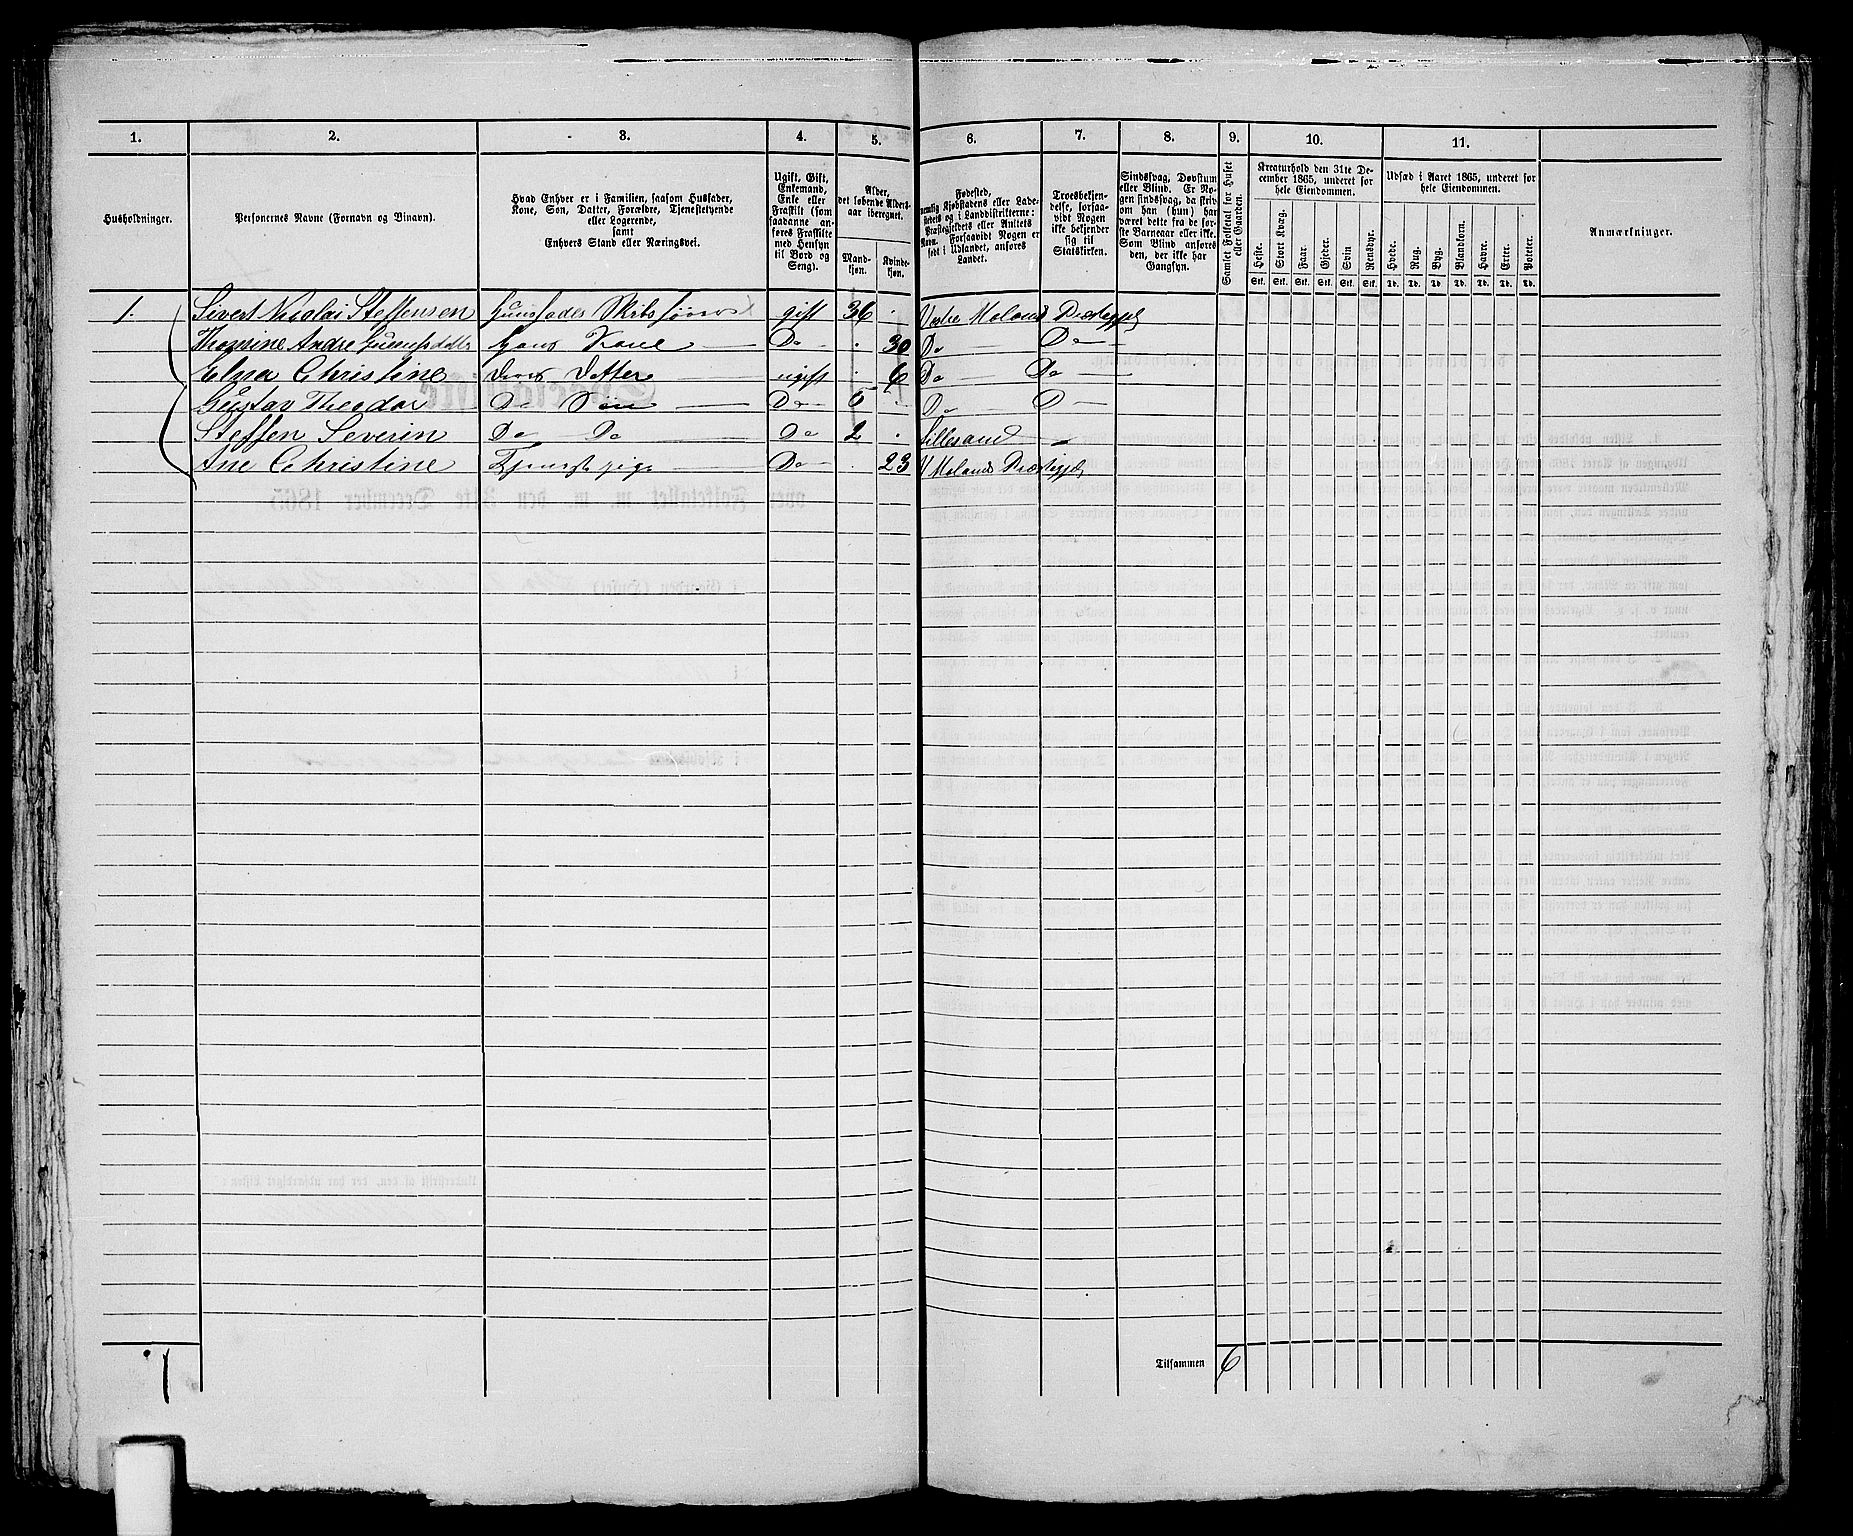 1. 2. 3. 4. 5. 6. 7. 8. 9. 10. 11.
Husholdninger.
Personernes Navne (Fornavn og Binavn).
Hvad Enhver er i Familien, saasom Husfader,
Kone, Søn, Datter, Forældre, Tjenestetyende
eller Logerende,
samt
Enhvers Stand eller Næringsvei.
Ugift, Gift,
Enkemand,
Enke eller
Fraskilt (som
saadanne an-
føres Fraskilte
med Hensyn
til Bord og
Seng).
Alder,
det løbende Alders-
aar iberegnet.
Mand-
kjøn.
Kvinde-
kjøn.
Fødested,
nemlig Kjøbstadens eller Lade-
stedets og i Landdistrikterne:
Præstegjeldets eller Annexets
Navn. Forsaavidt Nogen er
født i Udlandet, anføres
Landet.
Troesbekjen-
delse, forsaa-
vidt Nogen
ikke bekjender
sig til
Statskirken.
Sindssvag, Døvstum
eller Blind. Er No-
gen sindssvag, da skriv
om han (hun) har
været dette fra de før-
ste Barneaar eller ikke.
Som Blind anføres
den, der ikke har
Gangsyn.
Samlet Folketal for Huset
eller Gaarden.
Kreaturhold den 31te De-
cember 1865, underet for
hele Eiendommen.
Heste. Stort Kvæg. Faar. Gjeder. Svin Rensdyr.
Stk. Stk. Stk. Stk. Stk. Stk.
Udsæd i Aaret 1865, underet for
hele Eiendommen.
Hvede. Rug. Byg. Blandkorn. Havre. Erter. Poteter.
Td. Td. Td. Td. Td. Td. Td.
Anmærkninger.
1. Sivert Nicolai Steffensen Huusfader Skibsfører gift 36 . Vestre Moland Præstegjeld
Thomine Andrea Hans Kone Do . 30 Do Do
Elna Christine Deres Datter ugift . 6 Do Do
Gustav Theodor Do Søn Do 5 . Do D
Steffen Severin Do Do Do 2 . Lillesand
Ane Christine Tjenestepige Do . 23 V Molands Præstegjeld
1 Tilsammen 6